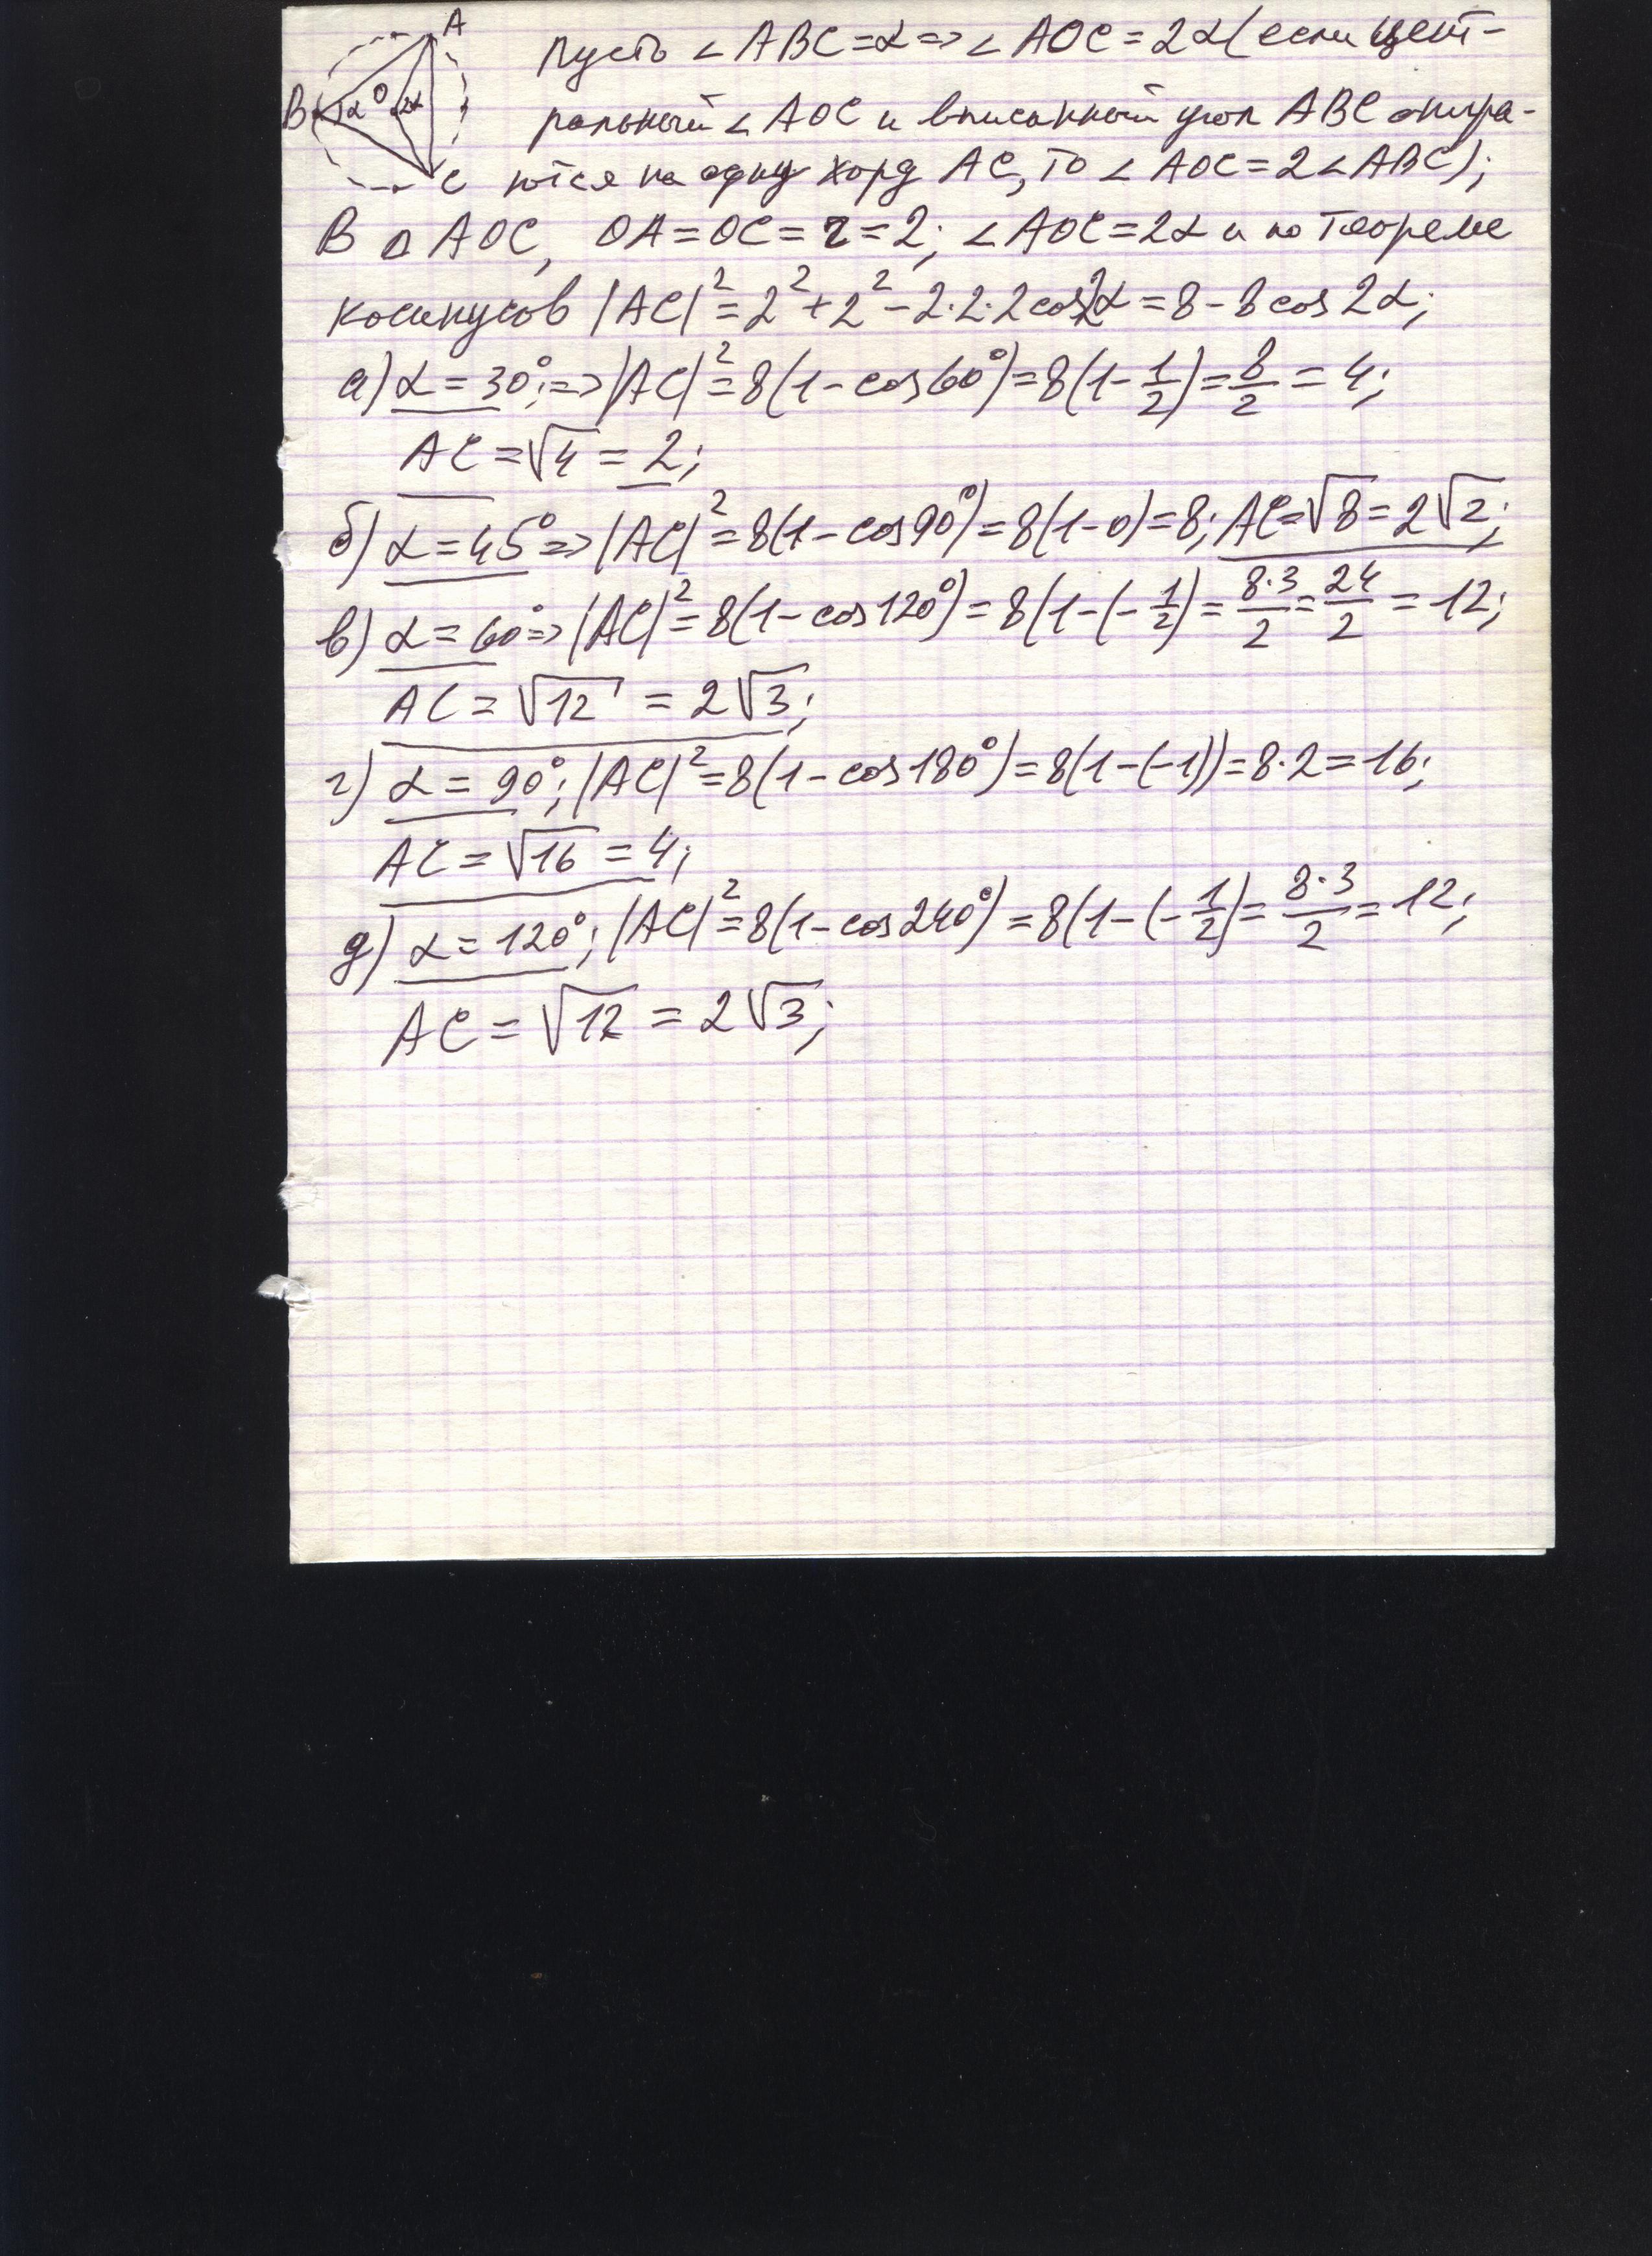 A
B
α
O
2α
C
Пусть ∠ABC=α=>∠AOC=2α(если цент-
ральный ∠AOC и вписанный угол ABC опира-
ются на одну хорд AC, то ∠AOC=2∠ABC);
В △AOC, OA=OC=r=2; ∠AOC=2α и по теореме
косинусов |AC|²=2²+2²-2·2·2cos2α=8-8cos2α;
а) α=30°;=>|AC|²=8(1-cos60°)=8(1-1/2)=8/2=4;
AC=√4=2;
б) α=45°=>|AC|²=8(1-cos90°)=8(1-0)=8; AC=√8=2√2;
в) α=60°=>|AC|²=8(1-cos120°)=8(1-(-1/2)=8·3/2=24/2=12;
AC=√12=2√3;
г) α=90°;|AC|²=8(1-cos180°)=8(1-(-1))=8·2=16;
AC=√16=4;
д) α=120°;|AC|²=8(1-cos240°)=8(1-(-1/2)=8·3/2=12;
AC=√12=2√3;